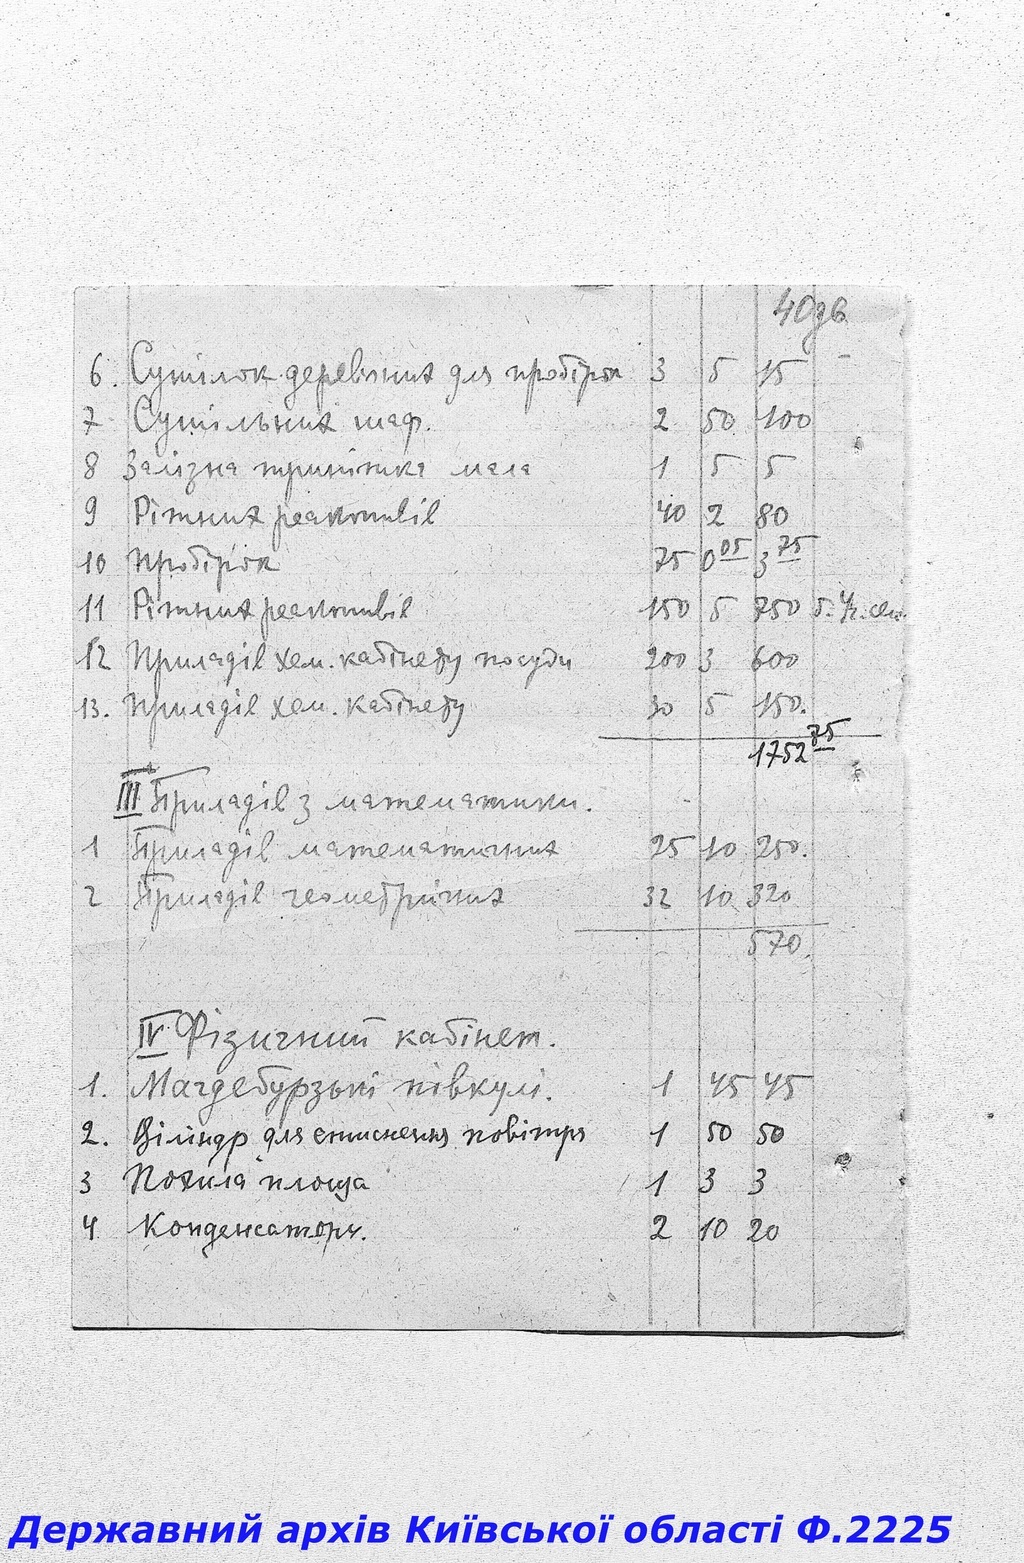 40зв
6. Сушілок деревʼяних для пробірок 3 5 15
7 Сушільних шаф. 2 50 100
8 Залізна тринітка мала 1 5 5
9 Ріжних реактивів 40 2 80
10 Пробірок 75 0 05 3 75
11 Ріжних реактивів 150 5 750
12 Приладів хем. кабінету посуди 200 3 600
13. Приладів хем. кабінету 30 5 150.
1752 75
III Приладів з математики.
1 Приладів математичних 25 10 250.
2 Приладів геометрічних 32 10 320
570.
IV Фізичний кабінет.
1. Магдебурзькі півкулі. 1 45 45
2. Ціліндр для стиснення повітря 1 50 50
3 Похила площа 1 3 3
4 Конденсатори. 2 10 20
Державний архів Київської області Ф.2225